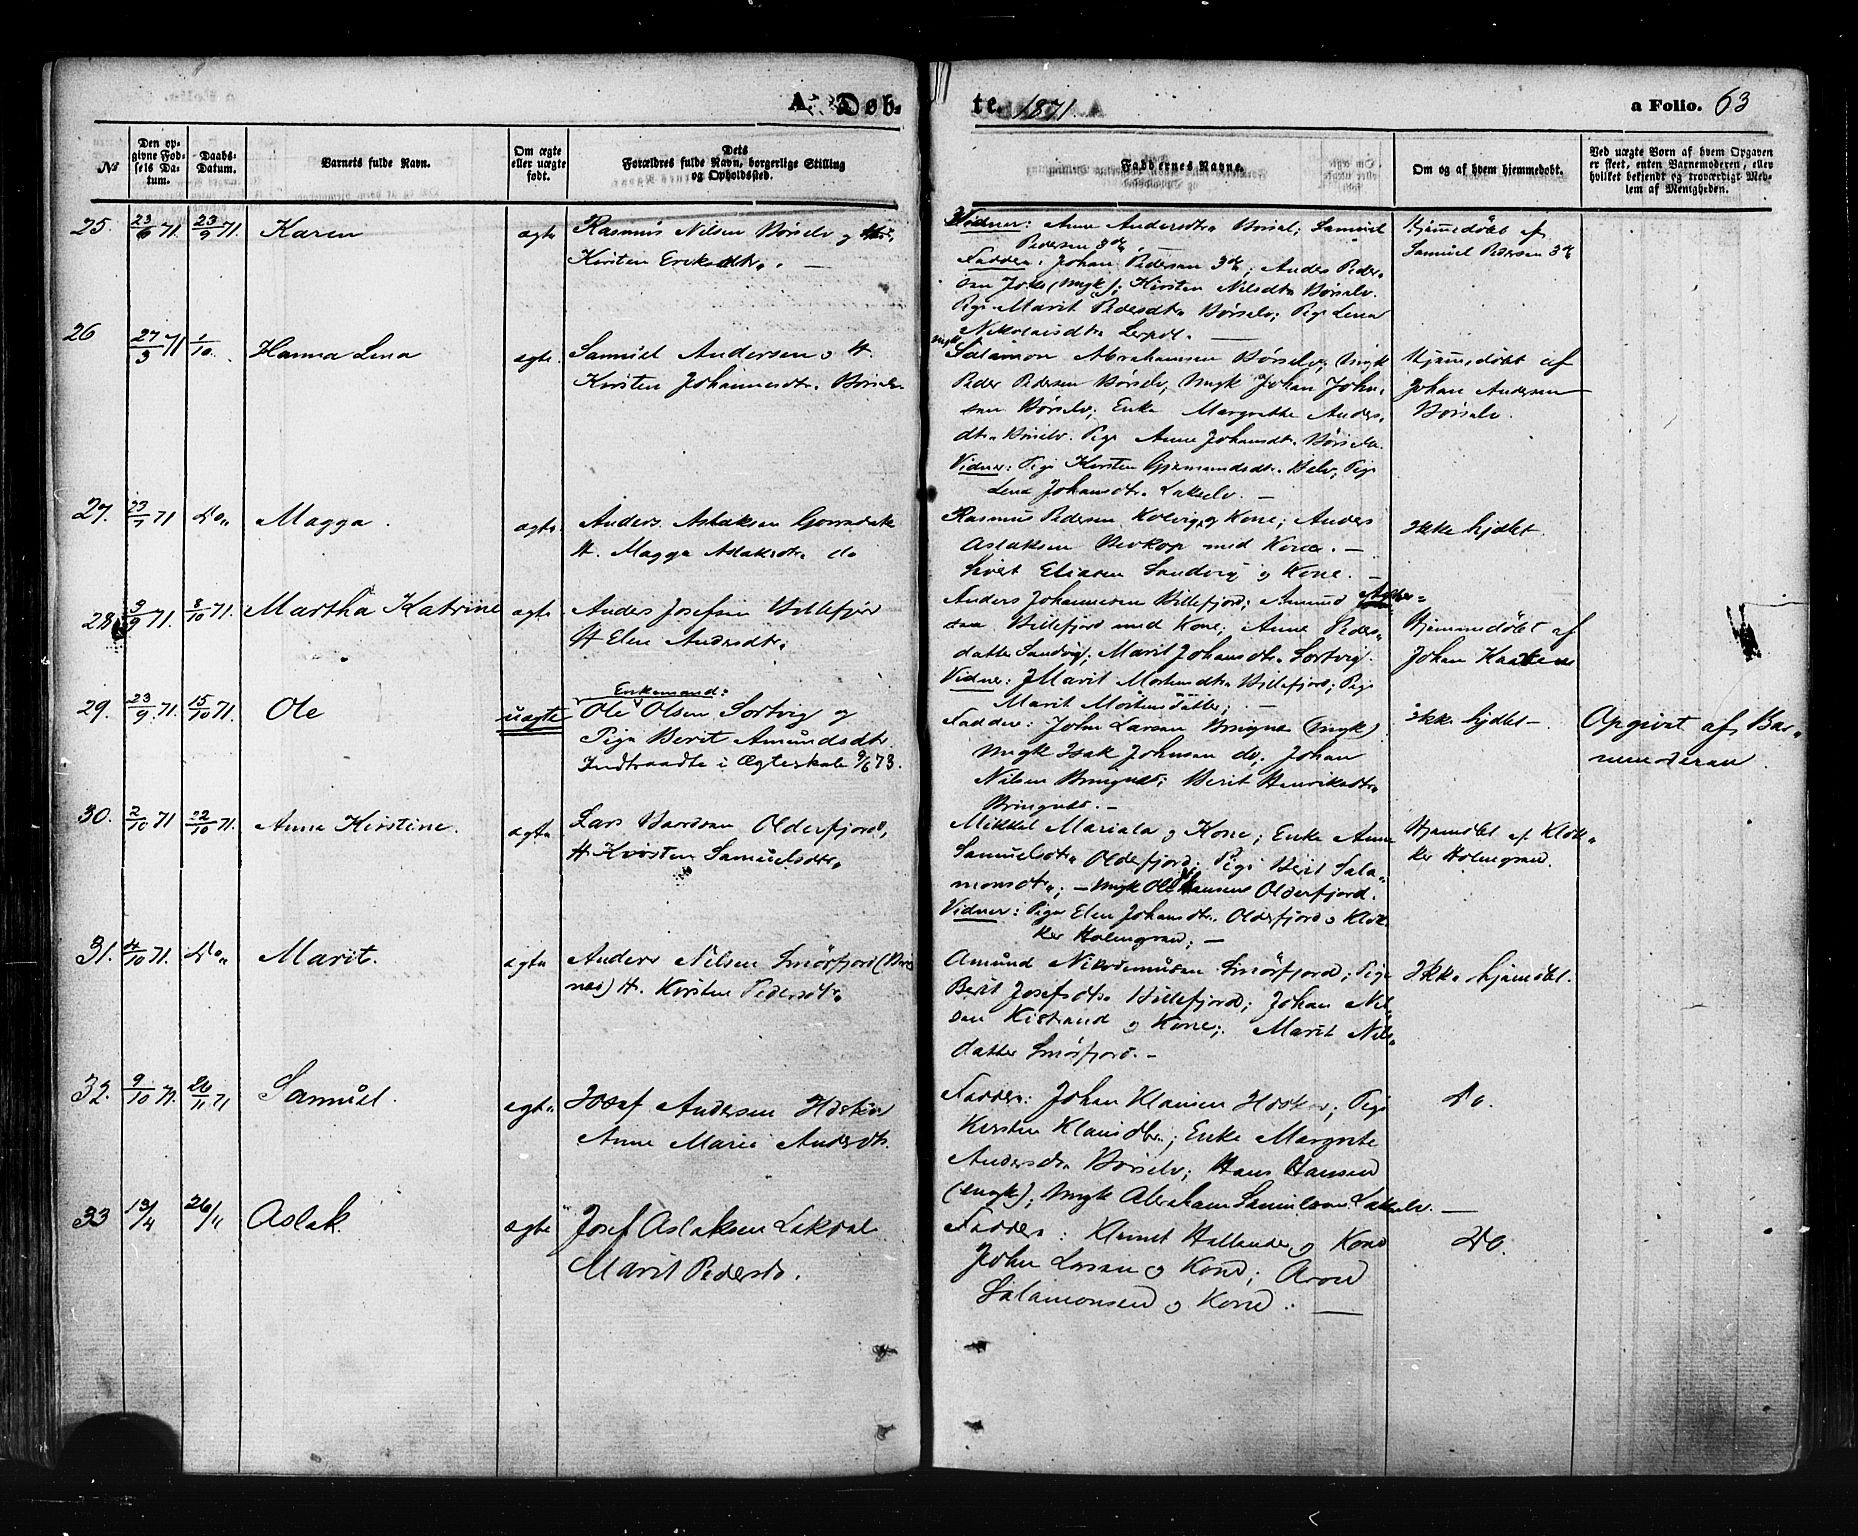 A. Døb-
te. 1871.
a Folio. 63
No
Den op-
givne Fød-
sels Da-
tum.
Daabs-
Datum.
Barnets fulde Navn.
Om ægte
eller uægte
født.
Dets
Forældres fulde Navn, borgerlige Stilling
og Opholdssted.
Faddernes Navne.
Om og af hvem hjemmedøbt.
Ved uægte Børn af hvem Opgaven
er skeet, enten Barnemoderen, eller
hvilket bekjendt og troværdigt Med-
lem af Menigheden.
25. 23/6 71. 23/9 71. Karen ægte
Rasmus Nilsen Børselv og
Kirsten Eriksdtr. —
Vidner: Anne Andersdtr Børsel; Samuel
Pedersen
Fadder: Johan Pedersen Anders Peder-
sen (Ungk); Kirsten Nilsdtr Børselv.
Pige Marit Pedersdtr Børselv; Pige Lena
Nikolaisdtr —
Hjemmedøbt af
Samuel Pedersen
26 27/3 71 1/10. Hanna Lena ægte
Samuel Andersen o H.
Kirsten Johannesdtr. Børselv
Salamon Abrahamsen Børselv; Ungk
Peder Pedersen Børselv, Ungk Johan John-
sen Børselv; Enke Margrethe Anders-
dtr Børselv. Pige Anne Johansdtr. Børselv.
Vidner: Pige Kirsten Pige
Lena Johansdtr. Lakselv. —
Hjemmedøbt af
Johan Andersen
Børselv.
27. 71 Do Magga. ægte.
Anders Aslaksen
H. Magga Aslaksdtr do
Rasmus Pedersen Kolvig og Kone; Anders
Aslaksen med Kone. —
Sivert Eliasen Sandvig og Kone. —
Ikke hjdbt.
28 3/9 71. 8/10 71. Martha Katrine ægte
Anders Josefsen Billefjor
H Elen Andersdtr.
Anders Johannesen Billefjord; Amund
sen Billefjord med Kone; Anne Peders-
datter Sandvig; Marit Johansdtr. Sortvig.
Vidner: Marit Mortensdtr Billefjord; Pige
Marit Mortensdatter; —
Hjemmedøbt af
Johan
29. 23/9 71. 15/10 71. Ole uægte
Enkemand:
Ole Olsen Sortvig og
Pige Berit Amundsdtr
Indtraadte i Ægteskab 9/6 73.
Fadder: John Larsen Bringnes (Ungk)
Ungk Isak Johnsen do. Johan
Nilsen Bringnes; Berit Henriksdtr
Bringnes. —
Ikke hjdbt —
Opgivet af Bar-
nemoderen.
30. 2/10 71 22/10 71. Anne Kirstine. ægte
Lars Baardsen Olderfjord,
H. Kirsten Samuelsdtr
Mikkel Mariala og Kone; Enke Anne
Samuelsdtr Olderfjord; Pige Berit Sala-
monsdtr; — Ungk Ole Hansen Olderfjord.
Vidner: Pige Elen Johansdtr. Olderfjord og Klok-
ker Holmgren; —
Hjemdbt af Klok-
ker Holmgren.
31. 4/10 71. Do Marit. ægte
Anders Nilsen Smörfjord (
nes) H. Kirsten Pedersdtr
Amund Nikodemusen Smörfjord; Pige
Berit Josefsdtr Billefjord; Johan Nil-
sen Kistrand og Kone; Marit Nils-
datter Smörfjord. —
Ikke hjemdbt.
32. 9/10 71. 26/11 71 Samuel. ægte
Josef Andersen
Anne Marie Andersdtr.
Fadder: Johan Klausen Pige
Kirsten Klausdtr.; Enke Margrete
Andersdtr Børselv; Hans Hansen
(Ungk); Ungk Abraham Samuelsen Lakselv. —
Do.
33 13/4 26/11 Aslak. ægte
Josef Aslaksen
Marit Pedersdtr.
Fadder: Hallander og Kone
John Larsen og Kone; Aron
Salamonsen og Kone. —
Do.